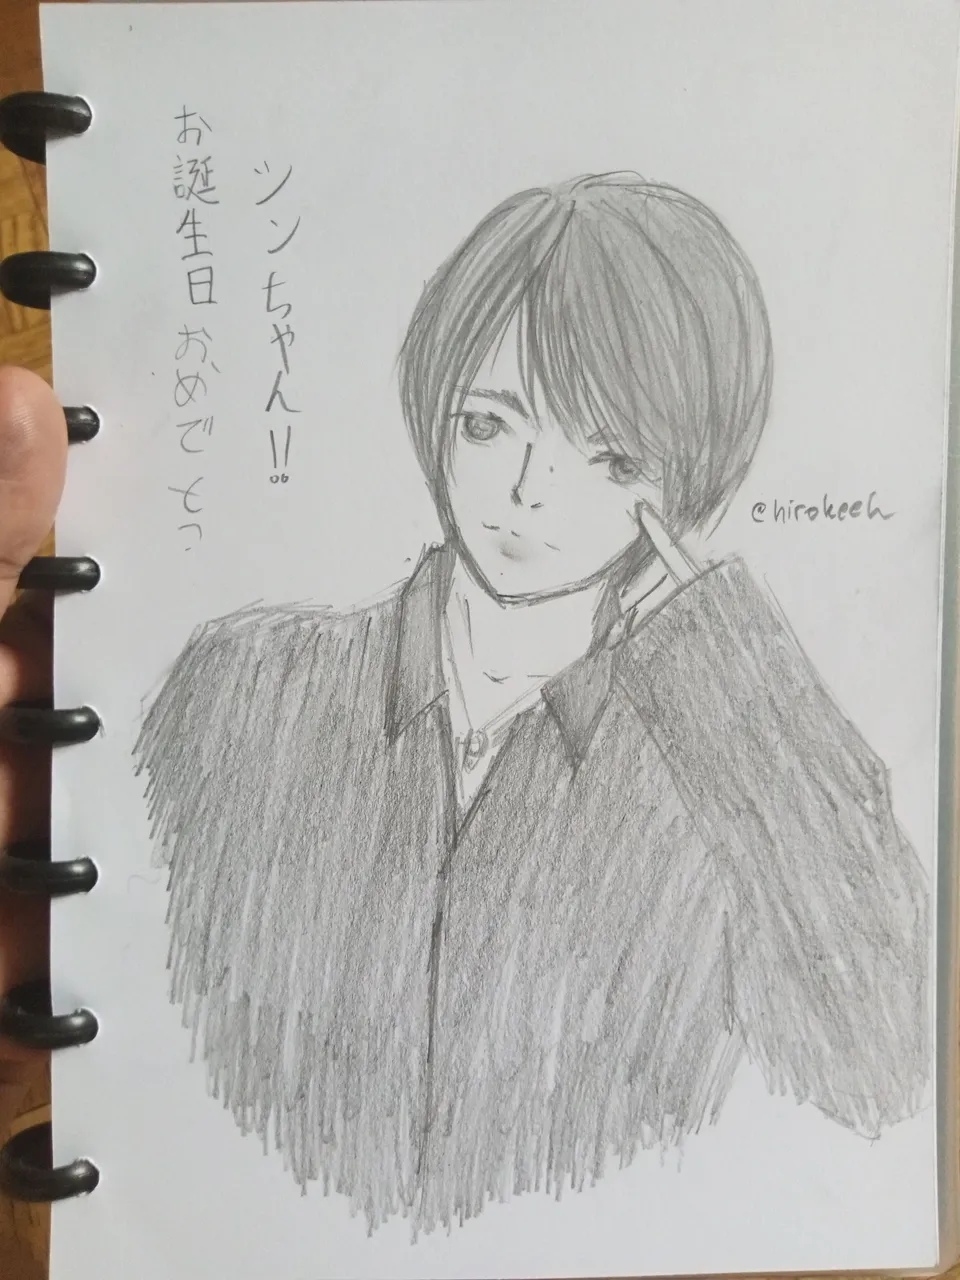 シンちゃん!!
お誕生日おめでとう
@hirokeeh